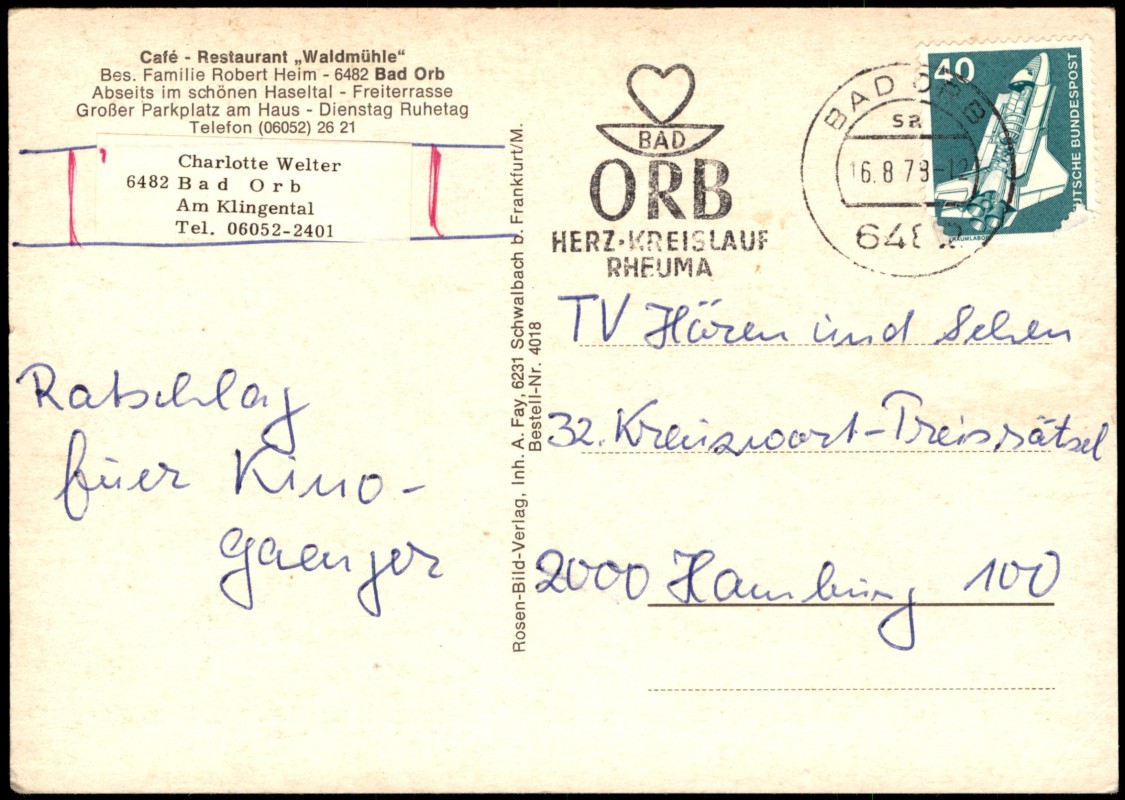 Café - Restaurant „Waldmühle“
Bes. Familie Robert Heim - 6482 Bad Orb
Abseits im schönen Haseltal - Freiterrasse
Großer Parkplatz am Haus - Dienstag Ruhetag
Telefon (06052) 26 21
Charlotte Welter
6482 Bad Orb
Am Klingental
Tel. 06052-2401
Ratschlag
fuer Kino-
gaenger
Rosen-Bild-Verlag, Inh. A. Fay, 6231 Schwalbach b. Frankfurt/M.
Bestell-Nr. 4018
BAD
ORB
HERZ·KREISLAUF
RHEUMA
BAD ORB
16.8.78-12
6482
40
DEUTSCHE BUNDESPOST
TV Hören und Sehen
32. Kreuzwort-Preisrätsel
2000 Hamburg 100